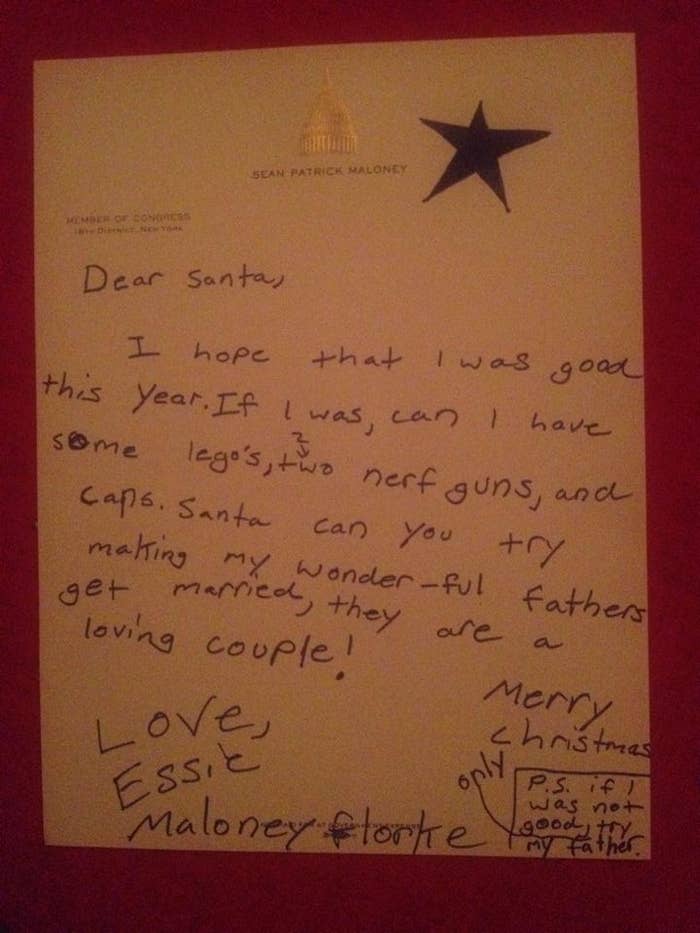 SEAN PATRICK MALONEY
MEMBER OF CONGRESS
18TH DISTRICT, NEW YORK
Dear Santa,
I hope that I was good
this year. If I was, can I have
some lego's, two nerf guns, and
2
caps. Santa can you try
making my wonder-ful fathers
get married, they are a
loving couple!
Love,
Essie
Maloney Florke
Merry
christmas
only
P.S. if I
was not
good, try
my father.